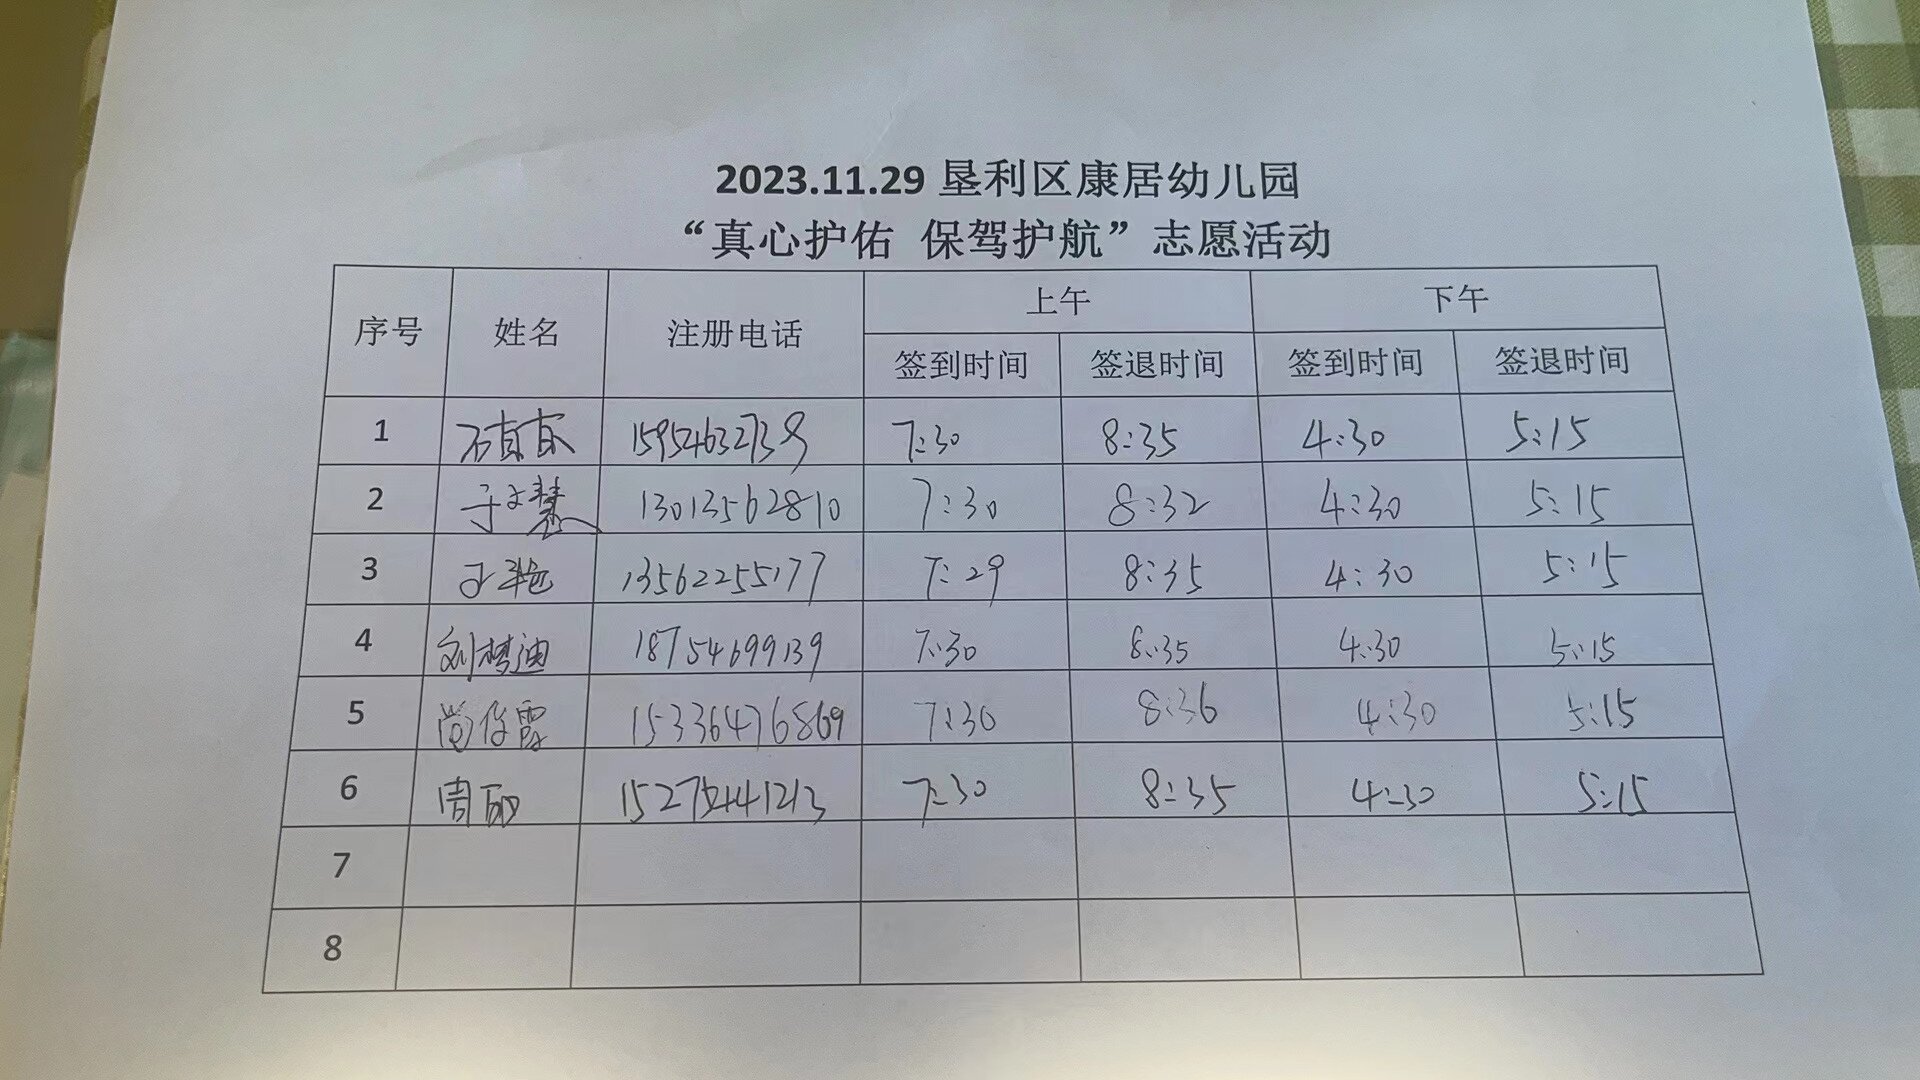 2023.11.29 垦利区康居幼儿园
“真心护佑 保驾护航”志愿活动
序号 姓名 注册电话 上午 下午
签到时间 签退时间 签到时间 签退时间
1 15954632739 7:30 8:35 4:30 5:15
2 于文慧 13013562810 7:30 8:32 4:30 5:15
3 于艳 13562255177 7:29 8:35 4:30 5:15
4 刘梦迪 18754699139 7:30 8:35 4:30 5:15
5 尚 霞 15336476869 7:30 8:36 4:30 5:15
6 周丽 15275441213 7:30 8:35 4:30 5:15
7
8